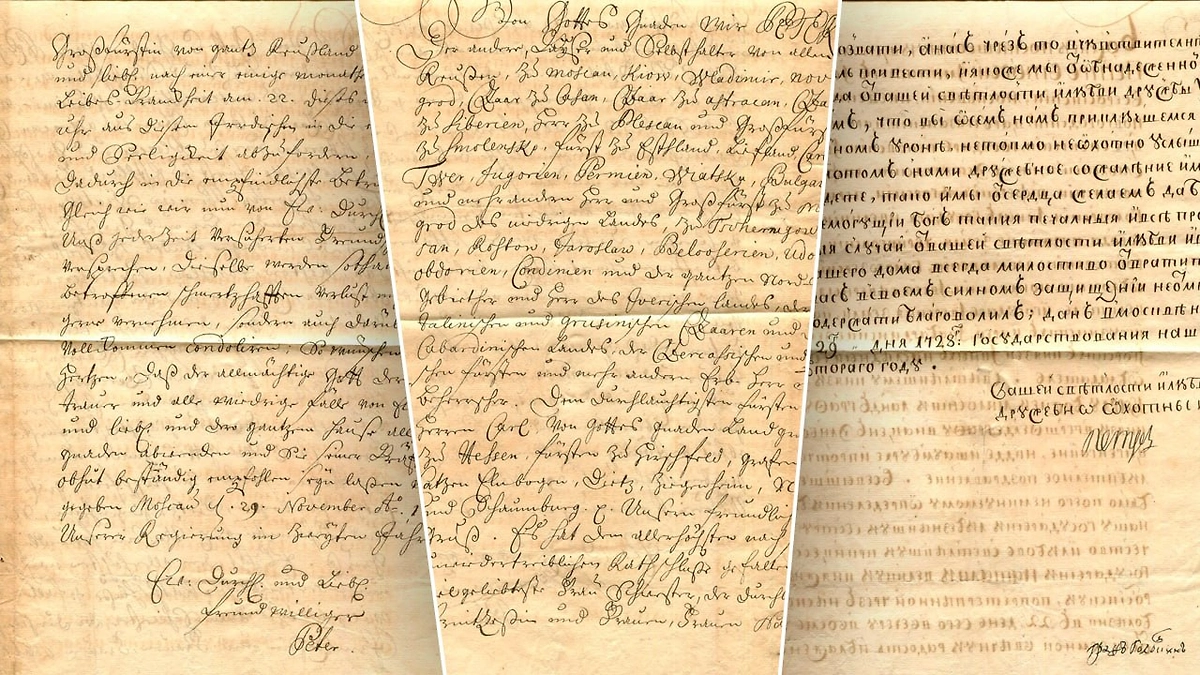 Großfürstin von gantz Reußland
und liebd. nach einer einige monathe
Leibes-Kranckheit am .22. dieses
uhr aus diesem Irrdischen in die
und Seeligkeit abzufordern,
Dadurch in die empfindlichste Betrü
Gleich wie wir nun von Ew: Durchl
Unß jederzeit versicherten Freund
versprechen, dieselbe werden sotha
betroffenen schmertzhafften Verlust
gerne vernehmen, sondern auch darüb
Vollkommen condoliren; So wünschen
Hertzen, daß der allmächtige Gott der
trauer und alle wiedrige Fälle von
und liebd. und dero gantzen Hause all
gnaden abwenden und Sie seiner
obhut beständig empfohlen seyn laßen
gegeben Moscau d. 29. November Ao. 1
Unserer Regierung im zweyten Jahr
Ew: Durchl: und Liebd:
freundwilliger
Peter
Von Gottes Gnaden Wir PETER
Der andere, Käyser und Selbsthalter von allen
Reußen, zu Moscau, Kiow, Wladimir, Nov
grod, Czaar zu Casan, Czaar zu Astracan, Cza
zu Siberien, Herr zu Plescau und Großfürs
zu Smolensko, Fürst zu Esthland, Liefland, Car
Twer, Jugorien, Permien, Wiatka, Bulgar
und mehr andern Herr und Großfürst zu
grod des niedrigen Landes, zu Tschernigow
san, Roßtow, Jaroslaw, Belooserien, Udo
obdorien, Condinien und der gantzen Nord
gebiether und Herr des Iverischen Landes der
talinischen und grusinischen Czaaren und
Cabardinischen Landes, der Czercassischen und
schen Fürsten und mehr andern Erb-Herr
Beherrscher. Dem durchlauchtigsten Fürsten
Herren Carl von Gottes gnaden Landgr
zu Hessen, Fürsten zu Hirschfeld, grafen
Catzen Elnbogen, Dietz, Ziegenheim, N
und Schaumburg. p. Unsern freundli
gruß. Es hat dem allerhöchsten nach
unwiedertreiblichen Rathschluße gefallen
vielgeliebteste Frau Schwester, der durchl
Printzeßin und Frauen, Frauen Na
оздати, ѝ насъ чрезъ то
ль привести, ѝ
да ѿ вашей свѣтлости ѝ любви дружбы
мъ, что вы ѡ семъ намъ приключшемся
номъ уронѣ, нетокмо неѡхотно услыш
потомъ с нами дружебное сожалѣние
дете, тако ѝ мы ѿ сердца желаемъ дав
емогущи богъ такия печалныя ѝ всѣ пр
я случаи ѿ вашей свѣтлости ѝ любви ѝ
ашего дома всегда милостиво ѿвратит
асъ в своемъ силномъ защищениі
одержати благоволилъ; данъ в москвѣ
29 дня 1728: государствования наш
втораго году.
Вашей свѣтлости ѝ любв
дружебнѡ ѡхотны
Петръ